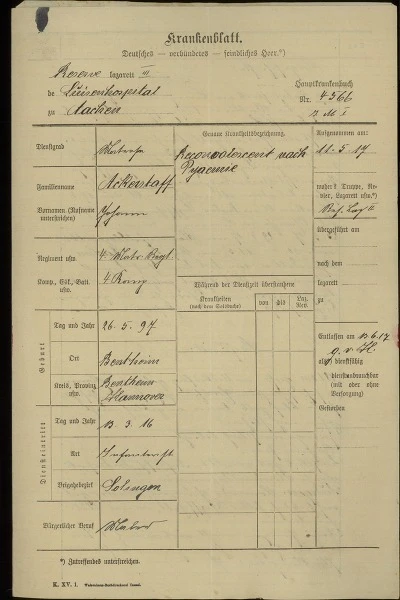 Krankenblatt.
Deutsches — verbündetes — feindliches Heer.*)
Reserve lazarett III
de Luisenhospital
zu Aachen
Hauptkrankenbuch
Nr. 4566
Dienstgrad Matrose
Genaue Krankheitsbezeichnung.
Reconvalescent nach
Pyaemie
Aufgenommen am:
11.5 17
woher? Truppe, Re-
vier, Lazarett usw.*)
Familienname Ackerstaff
Vornamen (Rufname
unterstreichen) Johann
Regiment usw. 4 Matr. Regt
Komp., Esk., Batt.
usw. 4 Komp
übergeführt am
nach dem
lazarett
zu
Während der Dienstzeit überstandene
Krankheiten
(nach dem Soldbuch)
von
bis
Laz.
Rev.
Geburt
Tag und Jahr 26.5.97
Ort Bentheim
Kreis, Provinz
usw. Bentheim
Hannover
Entlassen am 13.6.17
als: dienstfähig
dienstunbrauchbar
(mit oder ohne
Versorgung)
Gestorben
Diensteintritt
Tag und Jahr 13.3.16
Art
Beziehbezirk Solingen
Bürgerlicher Beruf
*) Zutreffendes unterstreichen.
K. XV. 1.